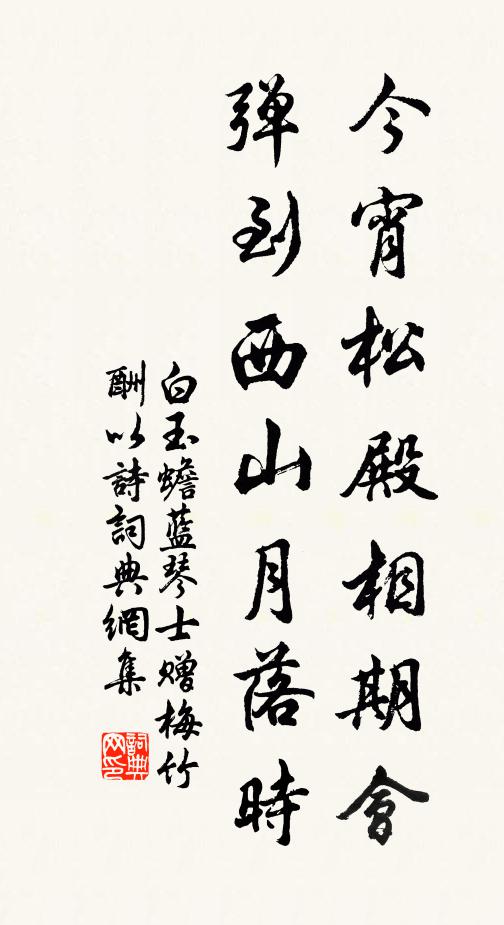 今宵松殿相期會
弹到西山月落時
白玉蟾蓝琴士赠梅竹
酬以詩詞典網集
詞典
网印